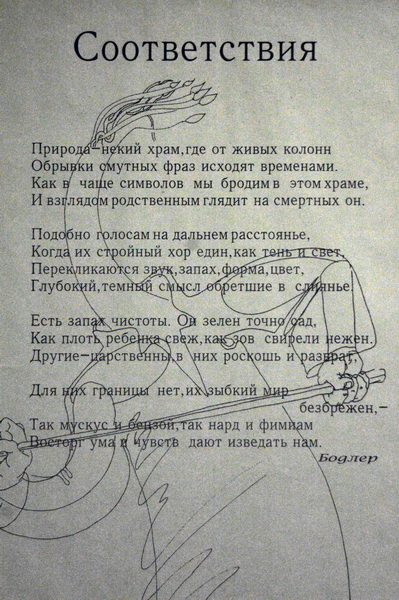 Соответствия
Природа-некий храм,где от живых колонн
Обрывки смутных фраз исходят временами.
Как в чаще символов мы бродим в этом храме,
И взглядом родственным глядит на смертных он.
Подобно голосам на дальнем расстоянье,
Когда их стройный хор един,как тень и свет,
Перекликаются звук,запах,форма,цвет,
Глубокий,темный смысл обретшие в слиянье.
Есть запах чистоты. Он зелен точно сад,
Как плоть ребенка свеж,как зов свирели нежен.
Другие-царственны,в них роскошь и разврат,
Для них границы нет,их зыбкий мир
безбрежен,-
Так мускус и бензой,так нард и фимиам
Восторг ума и чувств дают изведать нам.
Бодлер